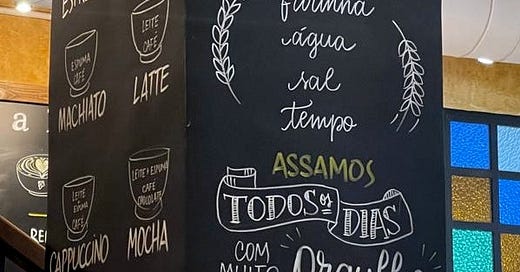 LEITE
CAFÉ
ESPUMA
CAFÉ
MACHIATO
LATTE
LEITE
E
ESPUMA
CAFÉ
CAPPUCCINO
LEITE E ESPUMA
CAFÉ
CHOCOLATE
MOCHA
a
farinha
água
sal
tempo
ASSAMOS
TODOS OS DIAS
COM
MUITO
Orgulho